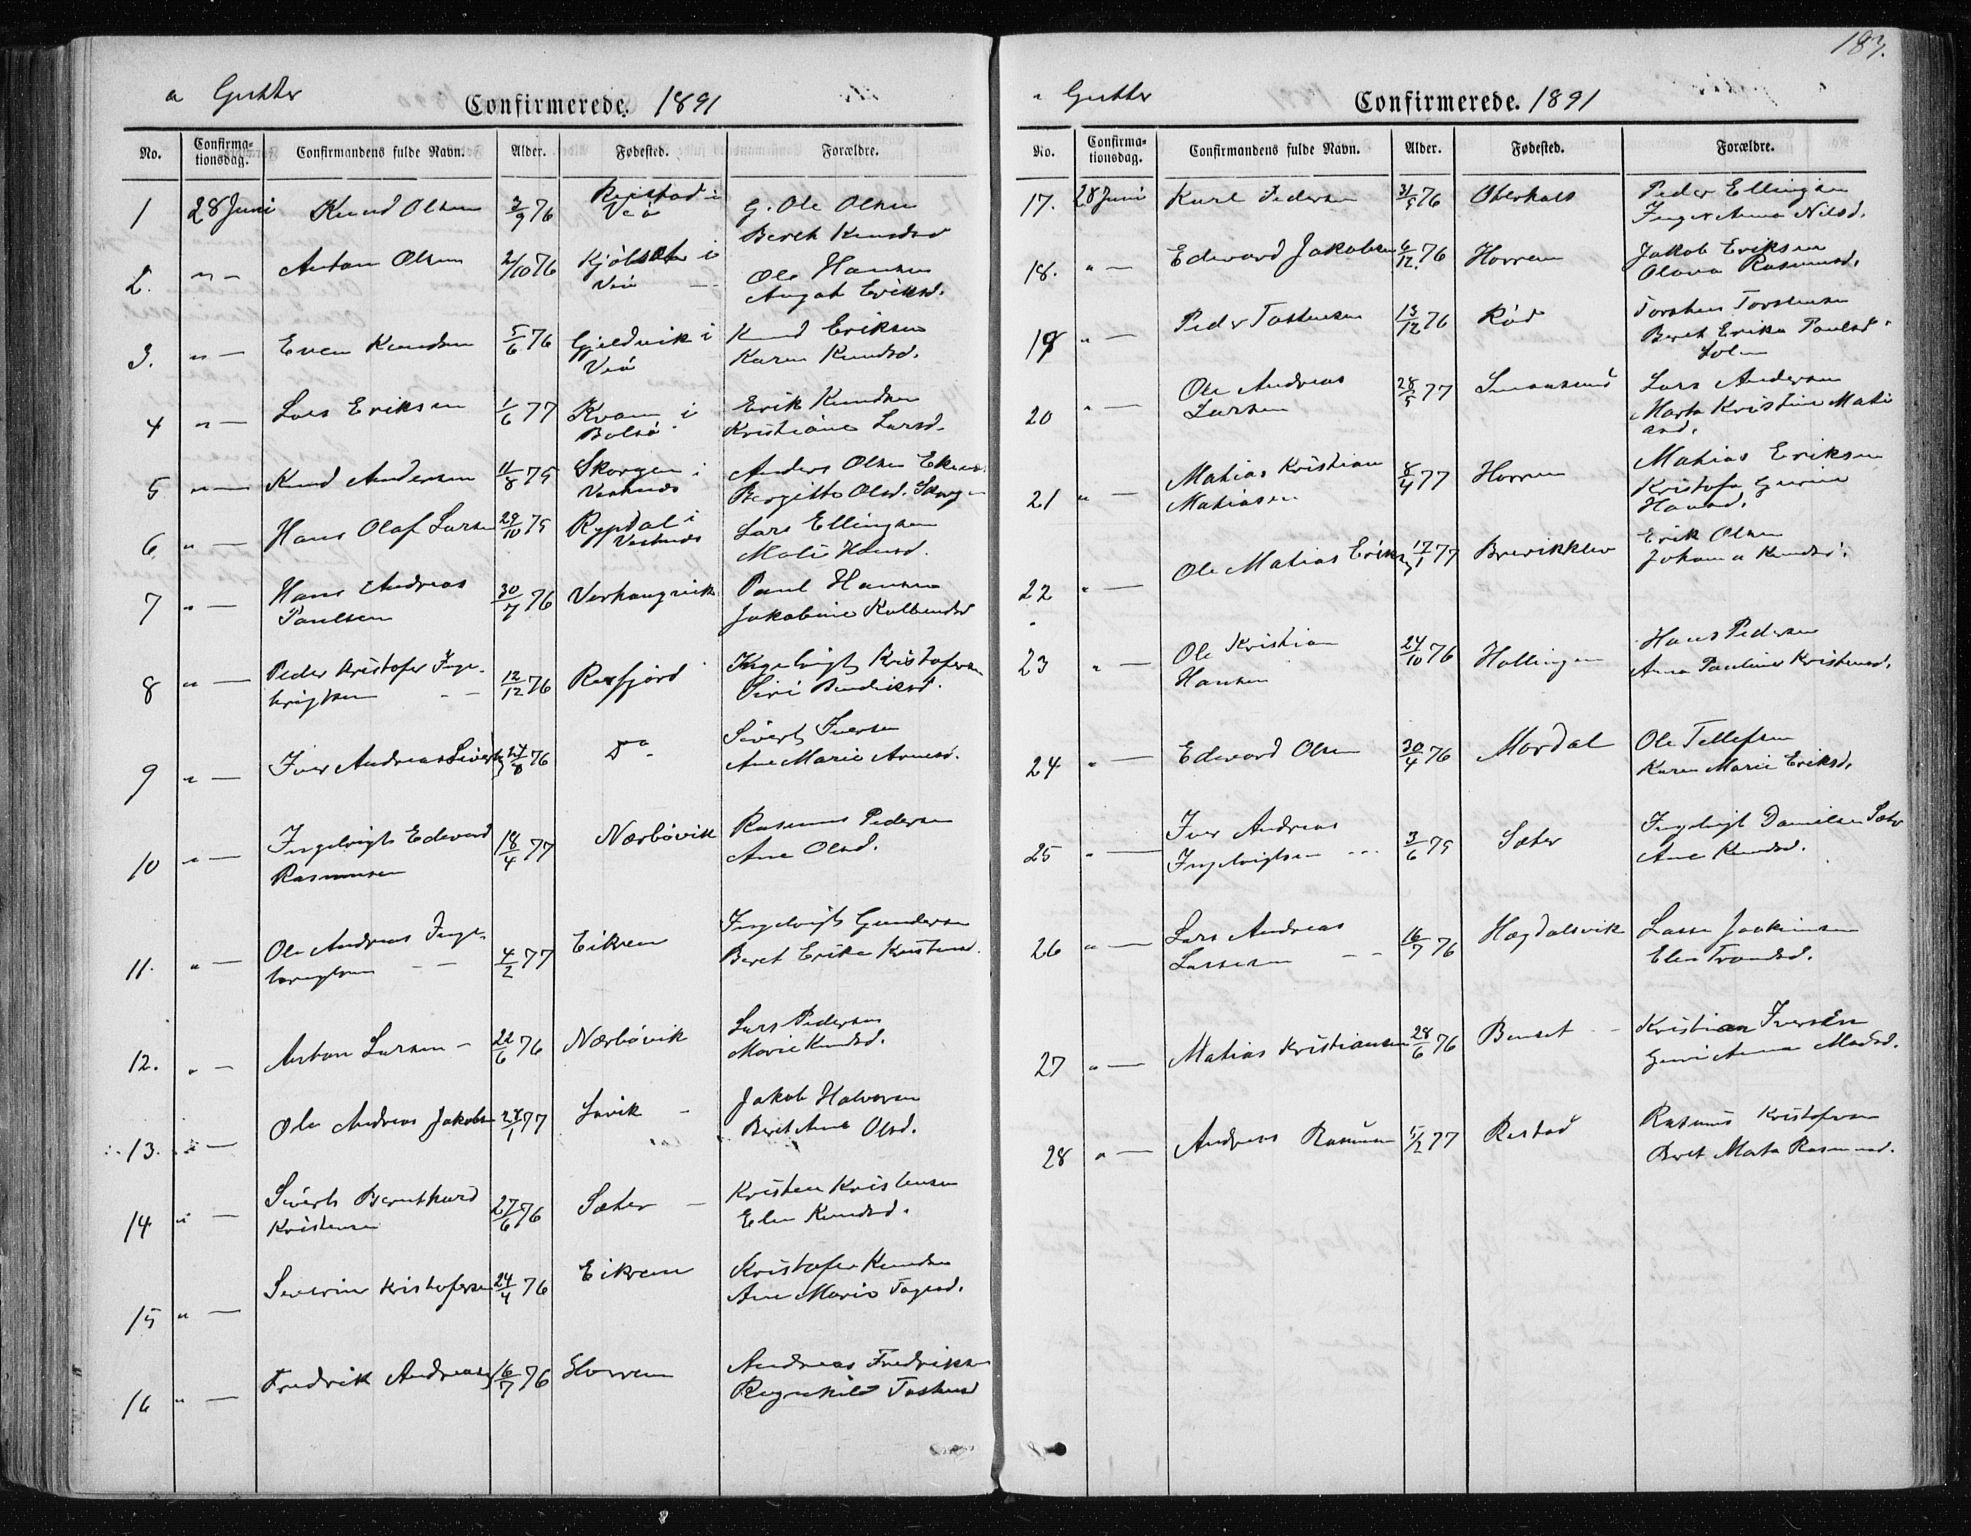 183.
a Gutter
Confirmerede. 1891
No. Confirma-tionsdag. Confirmandens fulde Navn. Alder. Fødested. Forældre.
1 28 Juni Knud Olsen 3/9 76 i Veø G. Ole Olsen
Bereth Knudsd
2. " — Anton Olsen 2/10 76 Kjölsæter i Veø Ole Hansen
Eriksd.
3. " — Even Knudsen 5/6 76 Gjeldvik i Veø Knud Eriksen
Karen Knudsd.
4 " — Lars Eriksen 1/6 77 Kvam i Bolsø Erik Knudsen
Kristiane Larsd.
5 " — Knud Andersen 11/8 75 Skorgen i Vestnæs Anders Olsen
Bergitte Olsd. Skorgen
6 " — Hans Olaf Larsen 29/10 75 Rypdal i Vestnæs Lars Ellingsen
Mali Hansd.
7 " — Hans Andreas
Paulsen 30/7 76 Verhaugvik Paul Hansen
Jakobine
8 " — Peder Kristofer Inge-
brigtsen 12/12 76 Rexfjord Ingebrigt Kristofersen
Siri Bendiksd.
9 " — Iver Andreas Sivertsen 76 Do Sivert Iversen
Ane Marie Arnesd.
10 " — Ingebrigt Edevard
Rasmusen 18/4 77 Nærbövik Rasmus Pedersen
Ane Olsd.
11. " — Ole Andreas Inge-
brigtsen 4/2 77 Eikrem Ingebrigt Gundersen
Beret Erika Kristensd.
12. " — Anton Larsen 22/6 76 Nærbövik Lars Pedersen
Marie Knudsd.
13. " — Ole Andreas Jakobsen 77 Lavik Jakob Halvorsen
Beret Ane Olsd.
14 " — Sivert Bernthard
Kristensen 27/6 76 Sæter Kristen Kristensen
Elen Knudsd.
15 " — Severin Kristofersen 24/4 76 Eikrem Kristofer Knudsen
Ane Marie
16 " — Fredrik Andreasen 16/7 76 Horrem Andreas Fredriksen
Ragnhild Tostensd
" Gutter
Confirmerede. 1891
No. Confirma-tionsdag. Confirmandens fulde Navn. Alder. Fødested. Forældre.
17. 28 Juni Karl Pedersen 31/5 76 Oterhals Peder Ellingsen
Inger Anna Nilsd.
18. " — Edevard Jakobsen 6/12. 76 Horrem Jakob Eriksen
Olava Rasmusd.
19 " — Peder Tostensen 13/12 76 Röd Torsten Torstensen
Beret Erika Paulsd.
20 " — Ole Andreas
Larsen 28/5 77 Lars Andersen
Marta Kristine Mati
asd.
21 " — Matias Kristian
Matiasen 8/4 77 Horrem Matias Eriksen
Kristofa Gurine
Hansd.
22 " — Ole Matias Eriksen 17/1 77 Brevikklev Erik Olsen
Johanna Knudsd.
23 " — Ole Kristian
Hansen 24/10 76 Hollingen Hans Pedersen
Anna Pauline Kristensd.
24 " — Edevard Olsen 30/4 76 Mordal Ole Tellefsen
Karen Marie Eriksd.
25 " — Iver Andreas
Ingebrigtsen 3/6 75 Sæter Ingebrigt Danielsen Sæter
Ane Knudsd.
26 " — Lars Andreas
Lassesen 16/7 76 Hægdalsvik Lasse Joakimsen
Elen Trondsd.
27 " — Matias Kristiansen 28/6 76 Benset Kristian Iversen
Guri Anna Madsd.
28 " — Andreas Rasmusen 5/2 77 Restad Rasmus Kristofersen
Beret Marta Rasmusd.